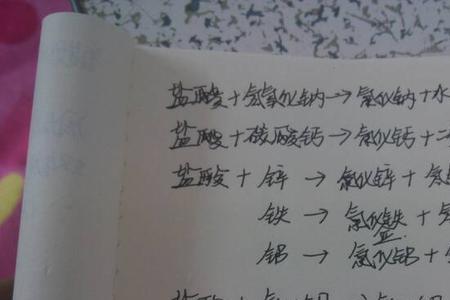 盐酸+氢氧化钠→氯化钠+水
盐酸+碳酸钙→氯化钙+二
盐酸+锌→氯化锌+氢
铁→氯化铁+
亚
铝→氯化铝+
盐酸+